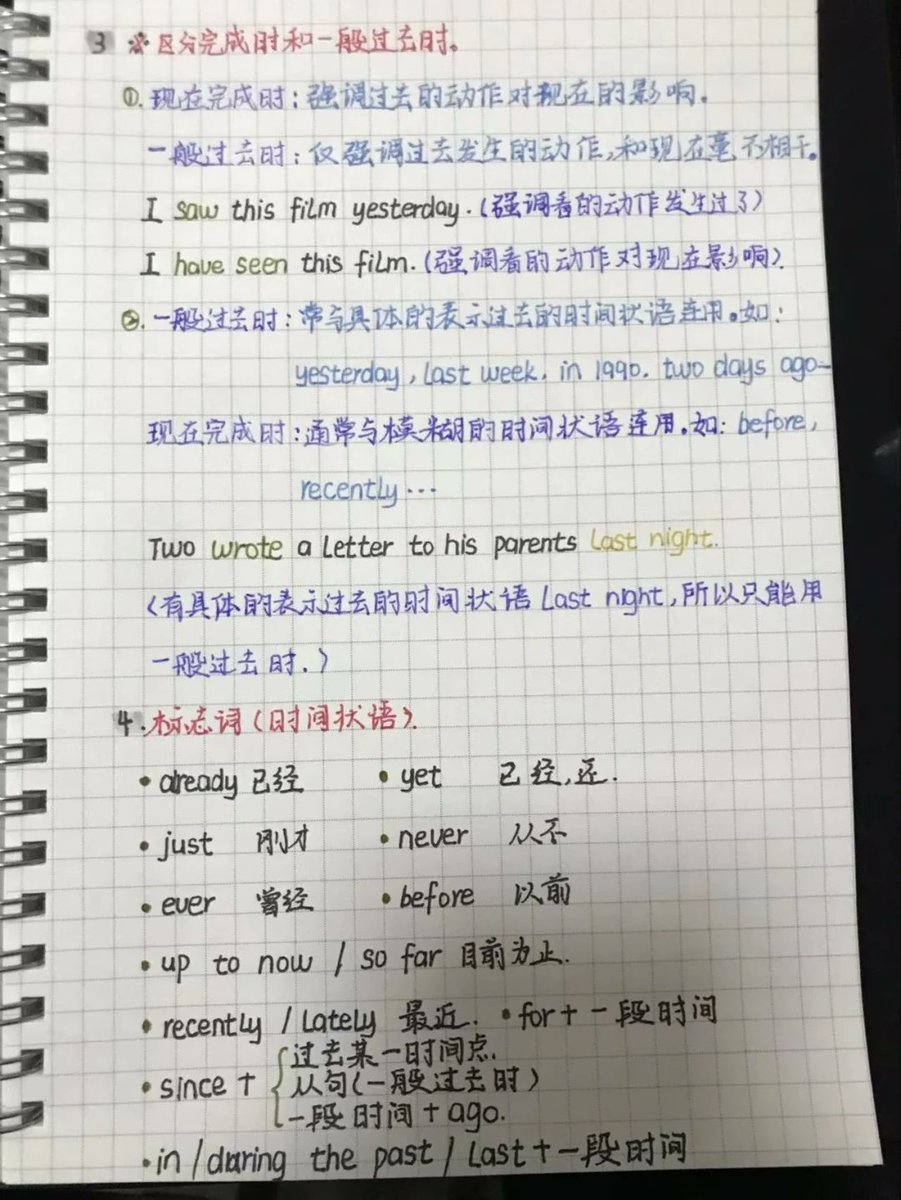 3 ※区分完成时和一般过去时。
①.现在完成时:强调过去的动作对现在的影响.
一般过去时:仅强调过去发生的动作,和现在毫不相干。
I saw this film yesterday.(强调看的动作发生过了)
I have seen this film.(强调看的动作对现在影响).
②.一般过去时:常与具体的表示过去的时间状语连用。如:
yesterday, last week. in 1990. two days ago~
现在完成时:通常与模糊的时间状语连用。如: before,
recently...
Two wrote a letter to his parents last night.
(有具体的表示过去的时间状语 last night,所以只能用
一般过去时.)
4.标志词(时间状语).
•already 已经 •yet 已经,还.
•just 刚才 •never 从不
•ever 曾经 •before 以前
•up to now / so far 目前为止.
•recently / lately 最近. •for+一段时间
•since + {过去某一时间点.
从句(一般过去时)
一段时间+ago.
•in / during the past / last+一段时间